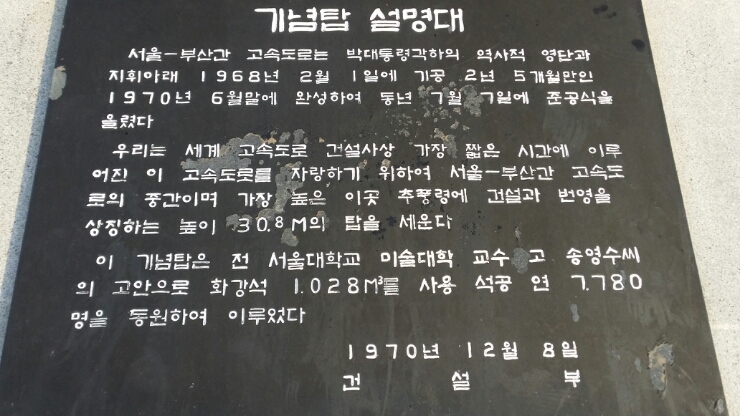 기념탑 설명대
서울-부산간 고속도로는 박대통령각하의 역사적 영단과
지휘아래 1968년 2월 1일에 기공 2년 5개월만인
1970년 6월말에 완성하여 동년 7월 7일에 준공식을
올렸다
우리는 세계 고속도로 건설사상 가장 짧은 시간에 이루
어진 이 고속도롯를 자랑하기 위하여 서울-부산간 고속도
로의 중간이며 가장 높은 이곳 추풍령에 건설과 번영을
상징하는 높이 30.8M의 탑을 세운다
이 기념탑은 전 서울대학교 미술대학 교수 고 송영수씨
의 고안으로 화강석 1.028M³를 사용 석공 연 7.780
명을 동원하여 이루었다
1970년 12월 8일
건 설 부